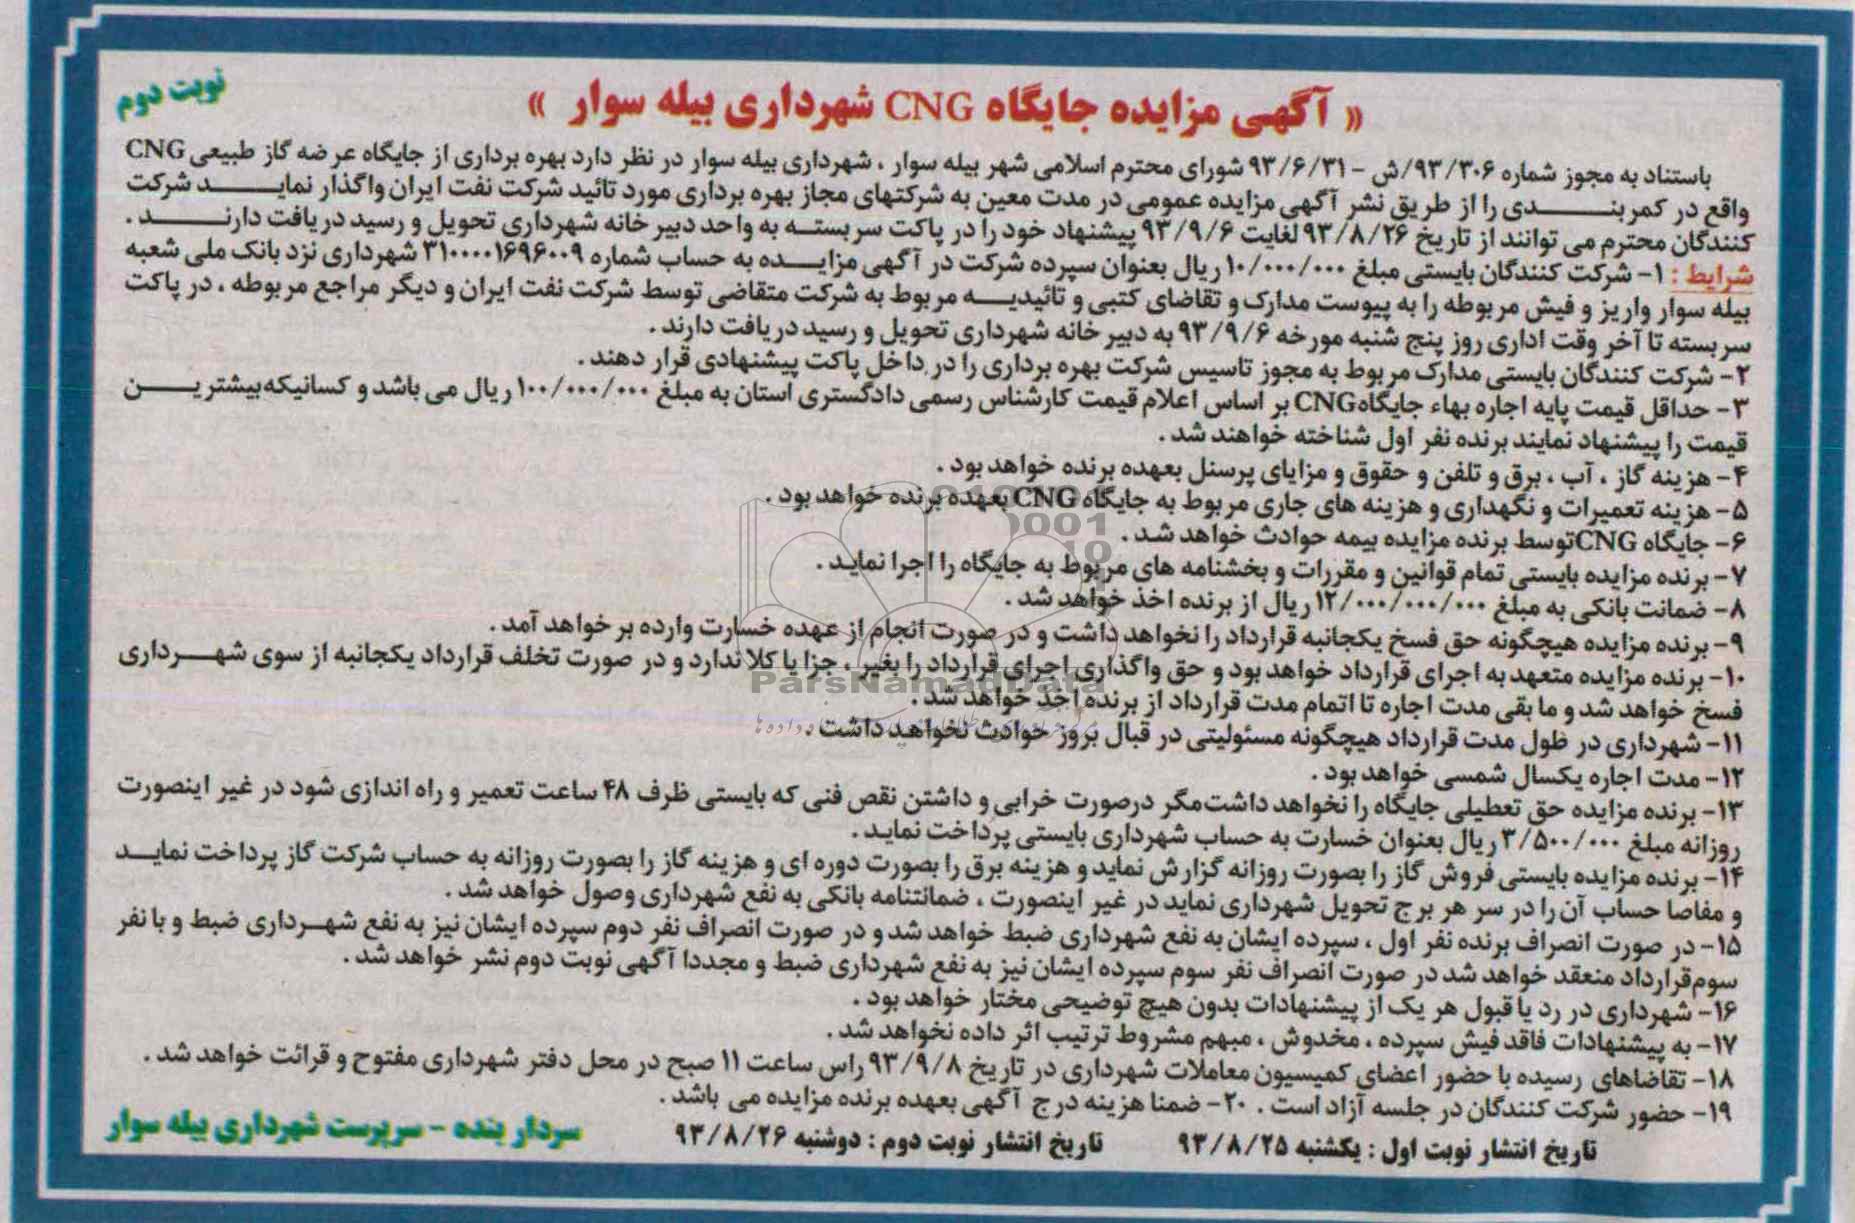 نوبت دوم
« آگهی مزایده جایگاه CNG شهرداری بیله سوار »
باستناد به مجوز شماره ۹۳/۳۰۶/ش - ۹۳/۶/۳۱ شورای محترم اسلامی شهر بیله سوار ، شهرداری بیله سوار در نظر دارد بهره برداری از جایگاه عرضه گاز طبیعی CNG
واقع در کمربندی را از طریق نشر آگهی مزایده عمومی در مدت معین به شرکتهای مجاز بهره برداری مورد تائید شرکت نفت ایران واگذار نماید شرکت
کنندگان محترم می توانند از تاریخ ۹۳/۸/۲۶ لغایت ۹۳/۹/۶ پیشنهاد خود را در پاکت سربسته به واحد دبیر خانه شهرداری تحویل و رسید دریافت دارند .
شرایط : ۱- شرکت کنندگان بایستی مبلغ ۱۰/۰۰۰/۰۰۰ ریال بعنوان سپرده شرکت در آگهی مزایده به حساب شماره ۳۱۰۰۰۰۱۶۹۶۰۰۹ شهرداری نزد بانک ملی شعبه
بیله سوار واریز و فیش مربوطه را به پیوست مدارک و تقاضای کتبی و تائیدیه مربوط به شرکت متقاضی توسط شرکت نفت ایران و دیگر مراجع مربوطه ، در پاکت
سربسته تا آخر وقت اداری روز پنج شنبه مورخه ۹۳/۹/۶ به دبیر خانه شهرداری تحویل و رسید دریافت دارند .
۲- شرکت کنندگان بایستی مدارک مربوط به مجوز تاسیس شرکت بهره برداری را در داخل پاکت پیشنهادی قرار دهند .
۳- حداقل قیمت پایه اجاره بهاء جایگاه CNG بر اساس اعلام قیمت کارشناس رسمی دادگستری استان به مبلغ ۱۰۰/۰۰۰/۰۰۰ ریال می باشد و کسانیکه بیشترین
قیمت را پیشنهاد نمایند برنده نفر اول شناخته خواهند شد .
۴- هزینه گاز ، آب ، برق و تلفن و حقوق و مزایای پرسنل بعهده برنده خواهد بود .
۵- هزینه تعمیرات و نگهداری و هزینه های جاری مربوط به جایگاه CNG بعهده برنده خواهد بود .
۶- جایگاه CNG توسط برنده مزایده بیمه حوادث خواهد شد .
۷- برنده مزایده بایستی تمام قوانین و مقررات و بخشنامه های مربوط به جایگاه را اجرا نماید .
۸- ضمانت بانکی به مبلغ ۱۲/۰۰۰/۰۰۰/۰۰۰ ریال از برنده اخذ خواهد شد .
۹- برنده مزایده هیچگونه حق فسخ یکجانبه قرارداد را نخواهد داشت و در صورت انجام از عهده خسارت وارده بر خواهد آمد .
۱۰- برنده مزایده متعهد به اجرای قرارداد خواهد بود و حق واگذاری اجرای قرارداد را بغیر ، جزا یا کلا ندارد و در صورت تخلف قرارداد یکجانبه از سوی شهرداری
فسخ خواهد شد و ما بقی مدت اجاره تا اتمام مدت قرارداد از برنده اخذ خواهد شد .
۱۱- شهرداری در طول مدت قرارداد هیچگونه مسئولیتی در قبال بروز حوادث نخواهد داشت .
۱۲- مدت اجاره یکسال شمسی خواهد بود .
۱۳- برنده مزایده حق تعطیلی جایگاه را نخواهد داشت مگر درصورت خرابی و داشتن نقص فنی که بایستی ظرف ۴۸ ساعت تعمیر و راه اندازی شود در غیر اینصورت
روزانه مبلغ ۳/۵۰۰/۰۰۰ ریال بعنوان خسارت به حساب شهرداری بایستی پرداخت نماید .
۱۴- برنده مزایده بایستی فروش گاز را بصورت روزانه گزارش نماید و هزینه برق را بصورت دوره ای و هزینه گاز را بصورت روزانه به حساب شرکت گاز پرداخت نماید
و مفاصا حساب آن را در سر هر برج تحویل شهرداری نماید در غیر اینصورت ، ضمانتنامه بانکی به نفع شهرداری وصول خواهد شد .
۱۵- در صورت انصراف برنده نفر اول ، سپرده ایشان به نفع شهرداری ضبط خواهد شد و در صورت انصراف نفر دوم سپرده ایشان نیز به نفع شهرداری ضبط و با نفر
سوم قرارداد منعقد خواهد شد در صورت انصراف نفر سوم سپرده ایشان نیز به نفع شهرداری ضبط و مجددا آگهی نوبت دوم نشر خواهد شد .
۱۶- شهرداری در رد یا قبول هر یک از پیشنهادات بدون هیچ توضیحی مختار خواهد بود .
۱۷- به پیشنهادات فاقد فیش سپرده ، مخدوش ، مبهم مشروط ترتیب اثر داده نخواهد شد .
۱۸- تقاضاهای رسیده با حضور اعضای کمیسیون معاملات شهرداری در تاریخ ۹۳/۹/۸ راس ساعت ۱۱ صبح در محل دفتر شهرداری مفتوح و قرائت خواهد شد .
۱۹- حضور شرکت کنندگان در جلسه آزاد است . ۲۰- ضمنا هزینه درج آگهی بعهده برنده مزایده می باشد .
تاریخ انتشار نوبت اول : یکشنبه ۹۳/۸/۲۵ تاریخ انتشار نوبت دوم : دوشنبه ۹۳/۸/۲۶
سردار بنده - سرپرست شهرداری بیله سوار
ParsNamadData